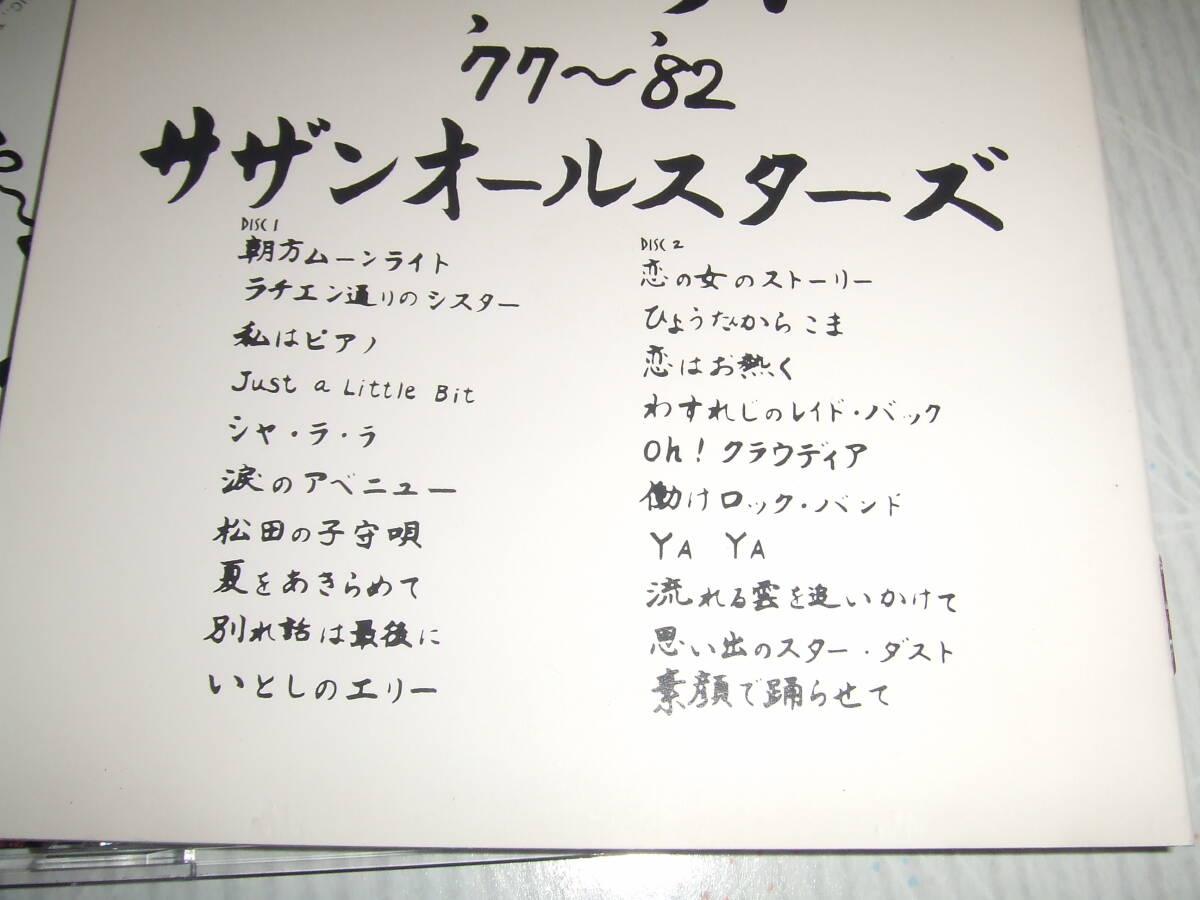 '77〜'82
サザンオールスターズ
DISC 1
朝方ムーンライト
ラチエン通りのシスター
私はピアノ
Just a Little Bit
シャ・ラ・ラ
涙のアベニュー
松田の子守唄
夏をあきらめて
別れ話は最後に
いとしのエリー
DISC 2
恋の女のストーリー
ひょうたんからこま
恋はお熱く
わすれじのレイド・バック
Oh! クラウディア
働けロック・バンド
YA YA
流れる雲を追いかけて
思い出のスター・ダスト
素顔で踊らせて